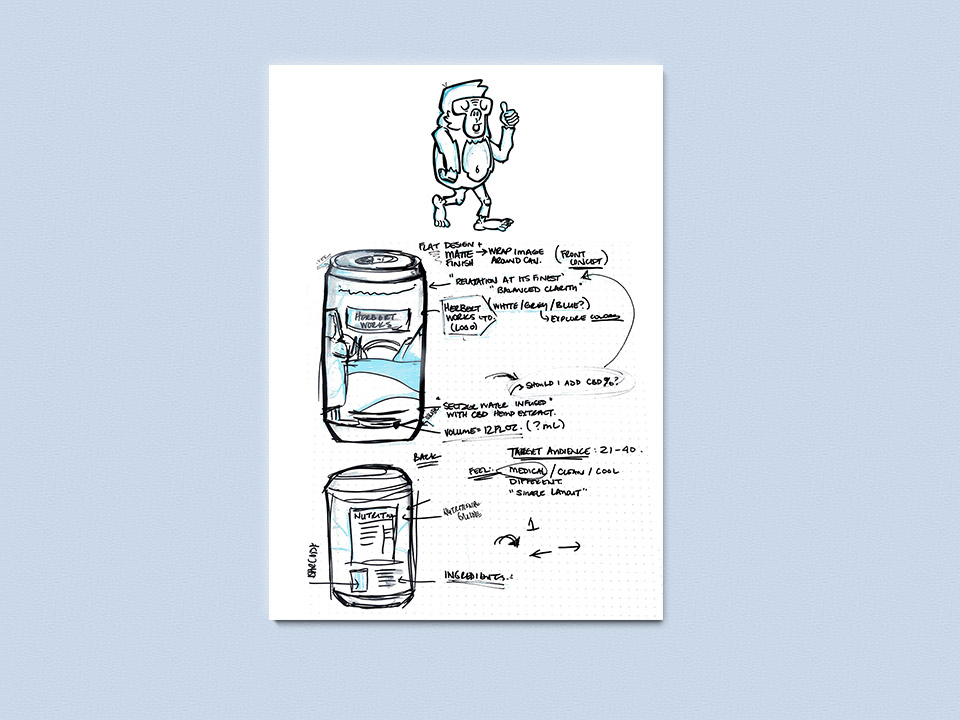 FLAT DESIGN +
MATTE → WRAP IMAGE
FINISH AROUND CAN.
(FRONT
CONCEPT)
"RELAXATION AT ITS FINEST"
"BALANCED CLARITY"
HERBERT
WORKS LTD.
(LOGO)
(WHITE/GREY/BLUE?)
EXPLORE COLORS
HERBERT
WORKS
SHOULD I ADD CBD %?
"SELTZER WATER INFUSED"
WITH CBD HEMP EXTRACT.
VOLUME = 12 FL OZ. (? mL)
BACK
TARGET AUDIENCE: 21-40.
FEEL: MEDICAL/CLEAN/COOL
DIFFERENT
"SIMPLE LAYOUT"
NUTRITION
NUTRITIONAL
GUIDE
1
BARCODE
INGREDIENTS: